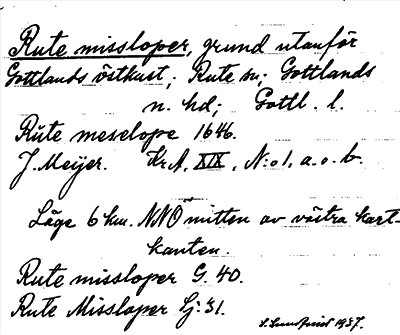 Rute missloper, grund utanför
Gottlands östkust; Rute sn; Gottlands
n. hd; Gottl. l.
Rute meselope 1646.
J. Meijer. Kr.A. XIX, N:o 1, a.o.b.
Läge 6 km. NNO mitten av västra kart-
kanten.
Rute missloper G. 40.
Rute Missloper Lj: 31.
S. Lundqvist 1937.